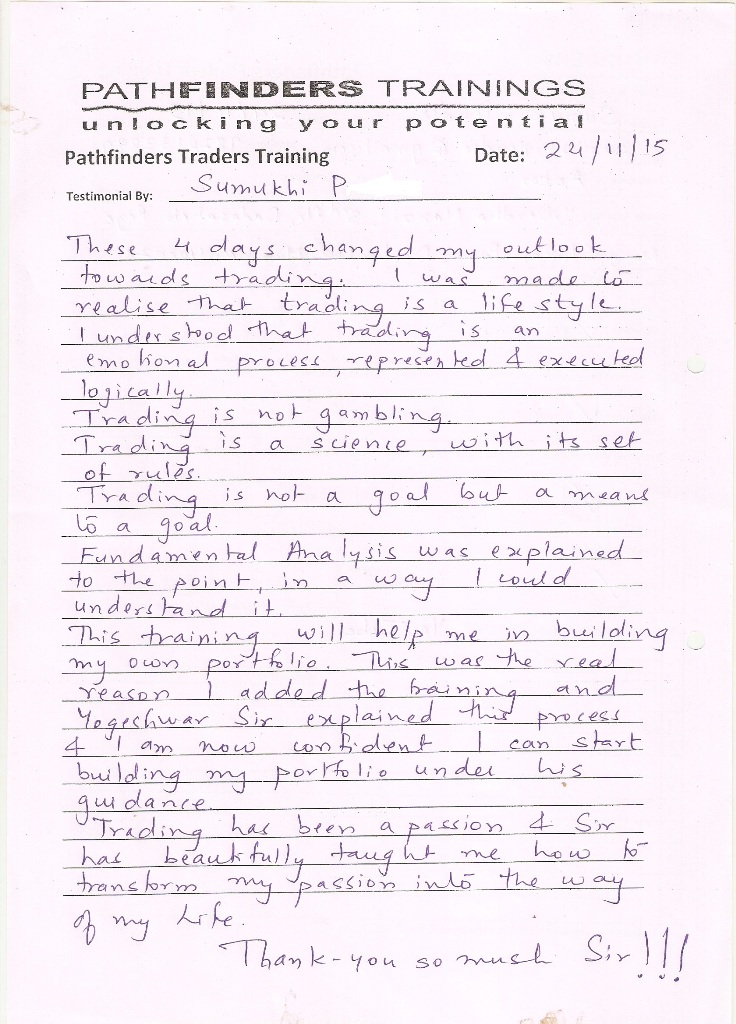 PATHFINDERS TRAININGS
unlocking your potential
Pathfinders Traders Training Date: 24/11/15
Testimonial By: Sumukhi P
These 4 days changed my outlook
towards trading. I was made to
realise that trading is a life style.
I understood that trading is an
emotional process, represented & executed
logically.
Trading is not gambling.
Trading is a science, with its set
of rules.
Trading is not a goal but a means
to a goal.
Fundamental Analysis was explained
to the point, in a way I could
understand it.
This training will help me in building
my own portfolio. This was the real
reason I added the training and
Yogeshwar Sir explained this process
& I am now confident I can start
building my portfolio under his
guidance.
Trading has been a passion & Sir
has beautifully taught me how to
transform my passion into the way
of my Life.
Thank-you so much Sir!!!